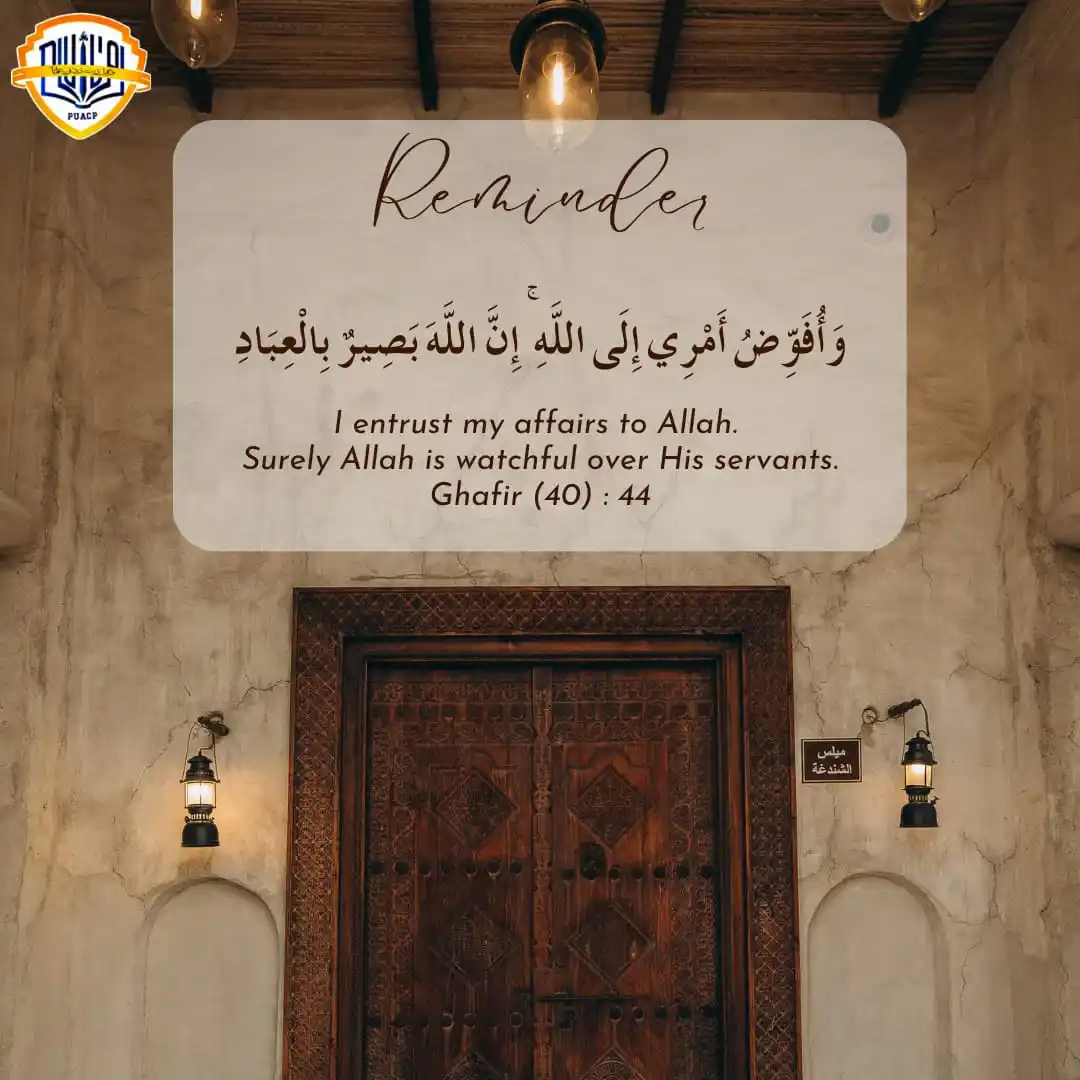 PUACP
Reminder
وَأُفَوِّضُ أَمْرِي إِلَى اللَّهِ ۚ إِنَّ اللَّهَ بَصِيرٌ بِالْعِبَادِ
I entrust my affairs to Allah.
Surely Allah is watchful over His servants.
Ghafir (40) : 44
ميلس
الشندغة